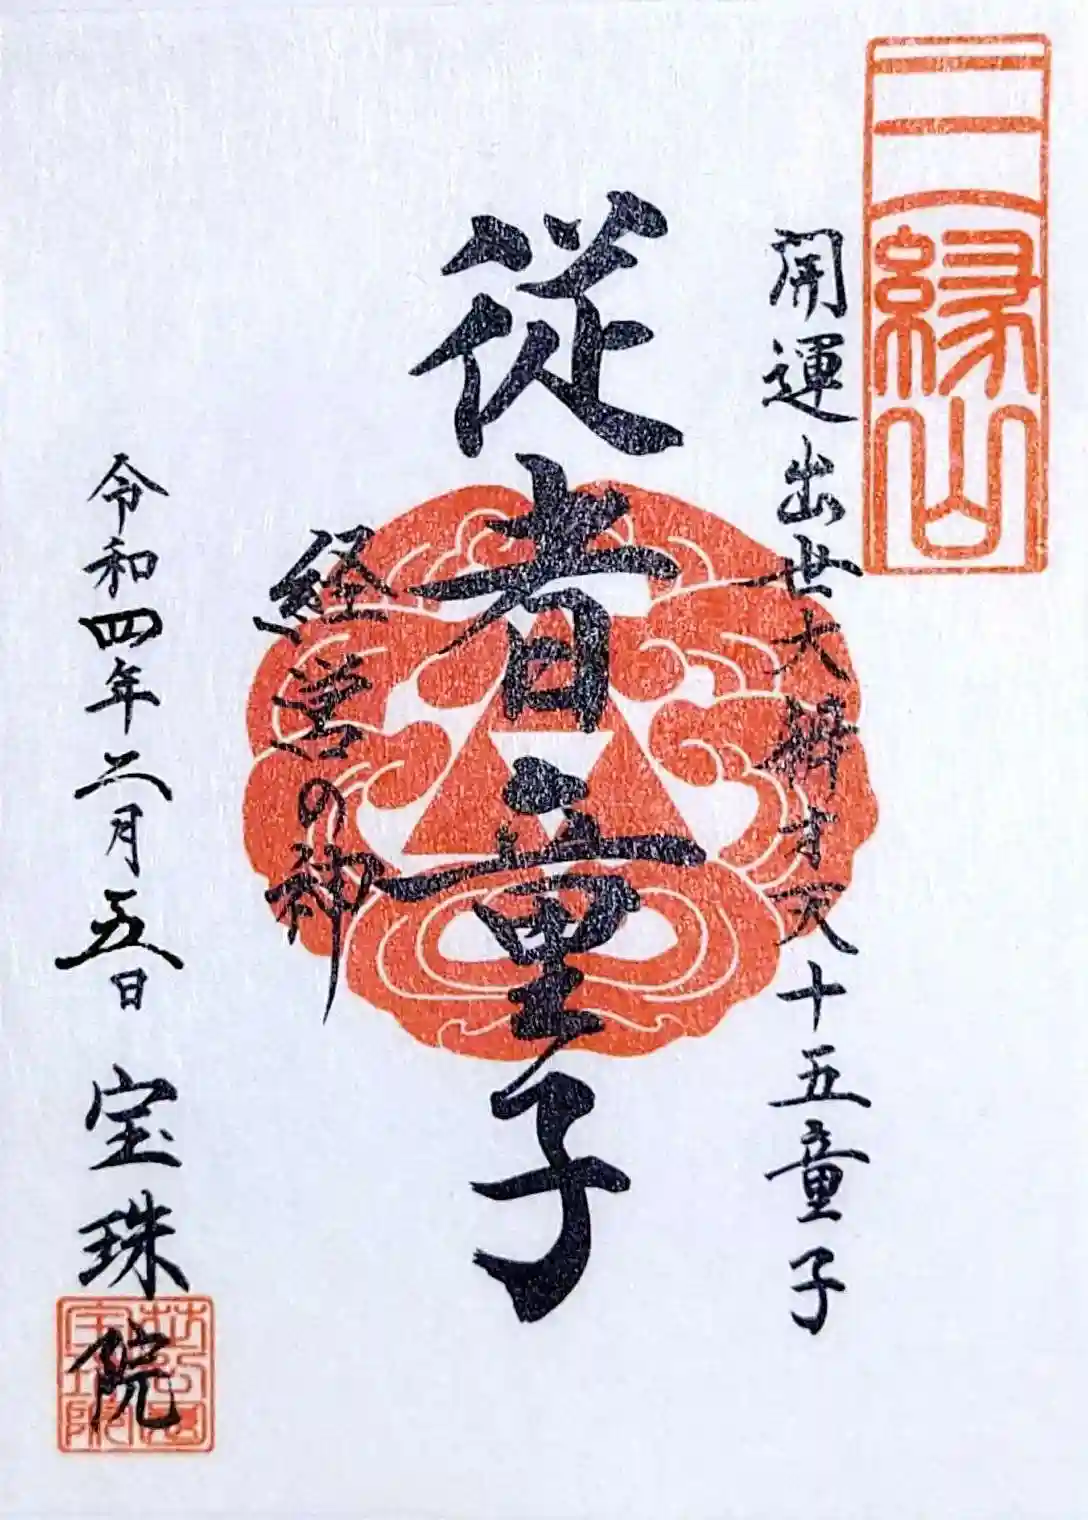 三縁山
開運出世大辨才天十五童子
従者童子
経営の神
令和四年二月五日 宝珠院